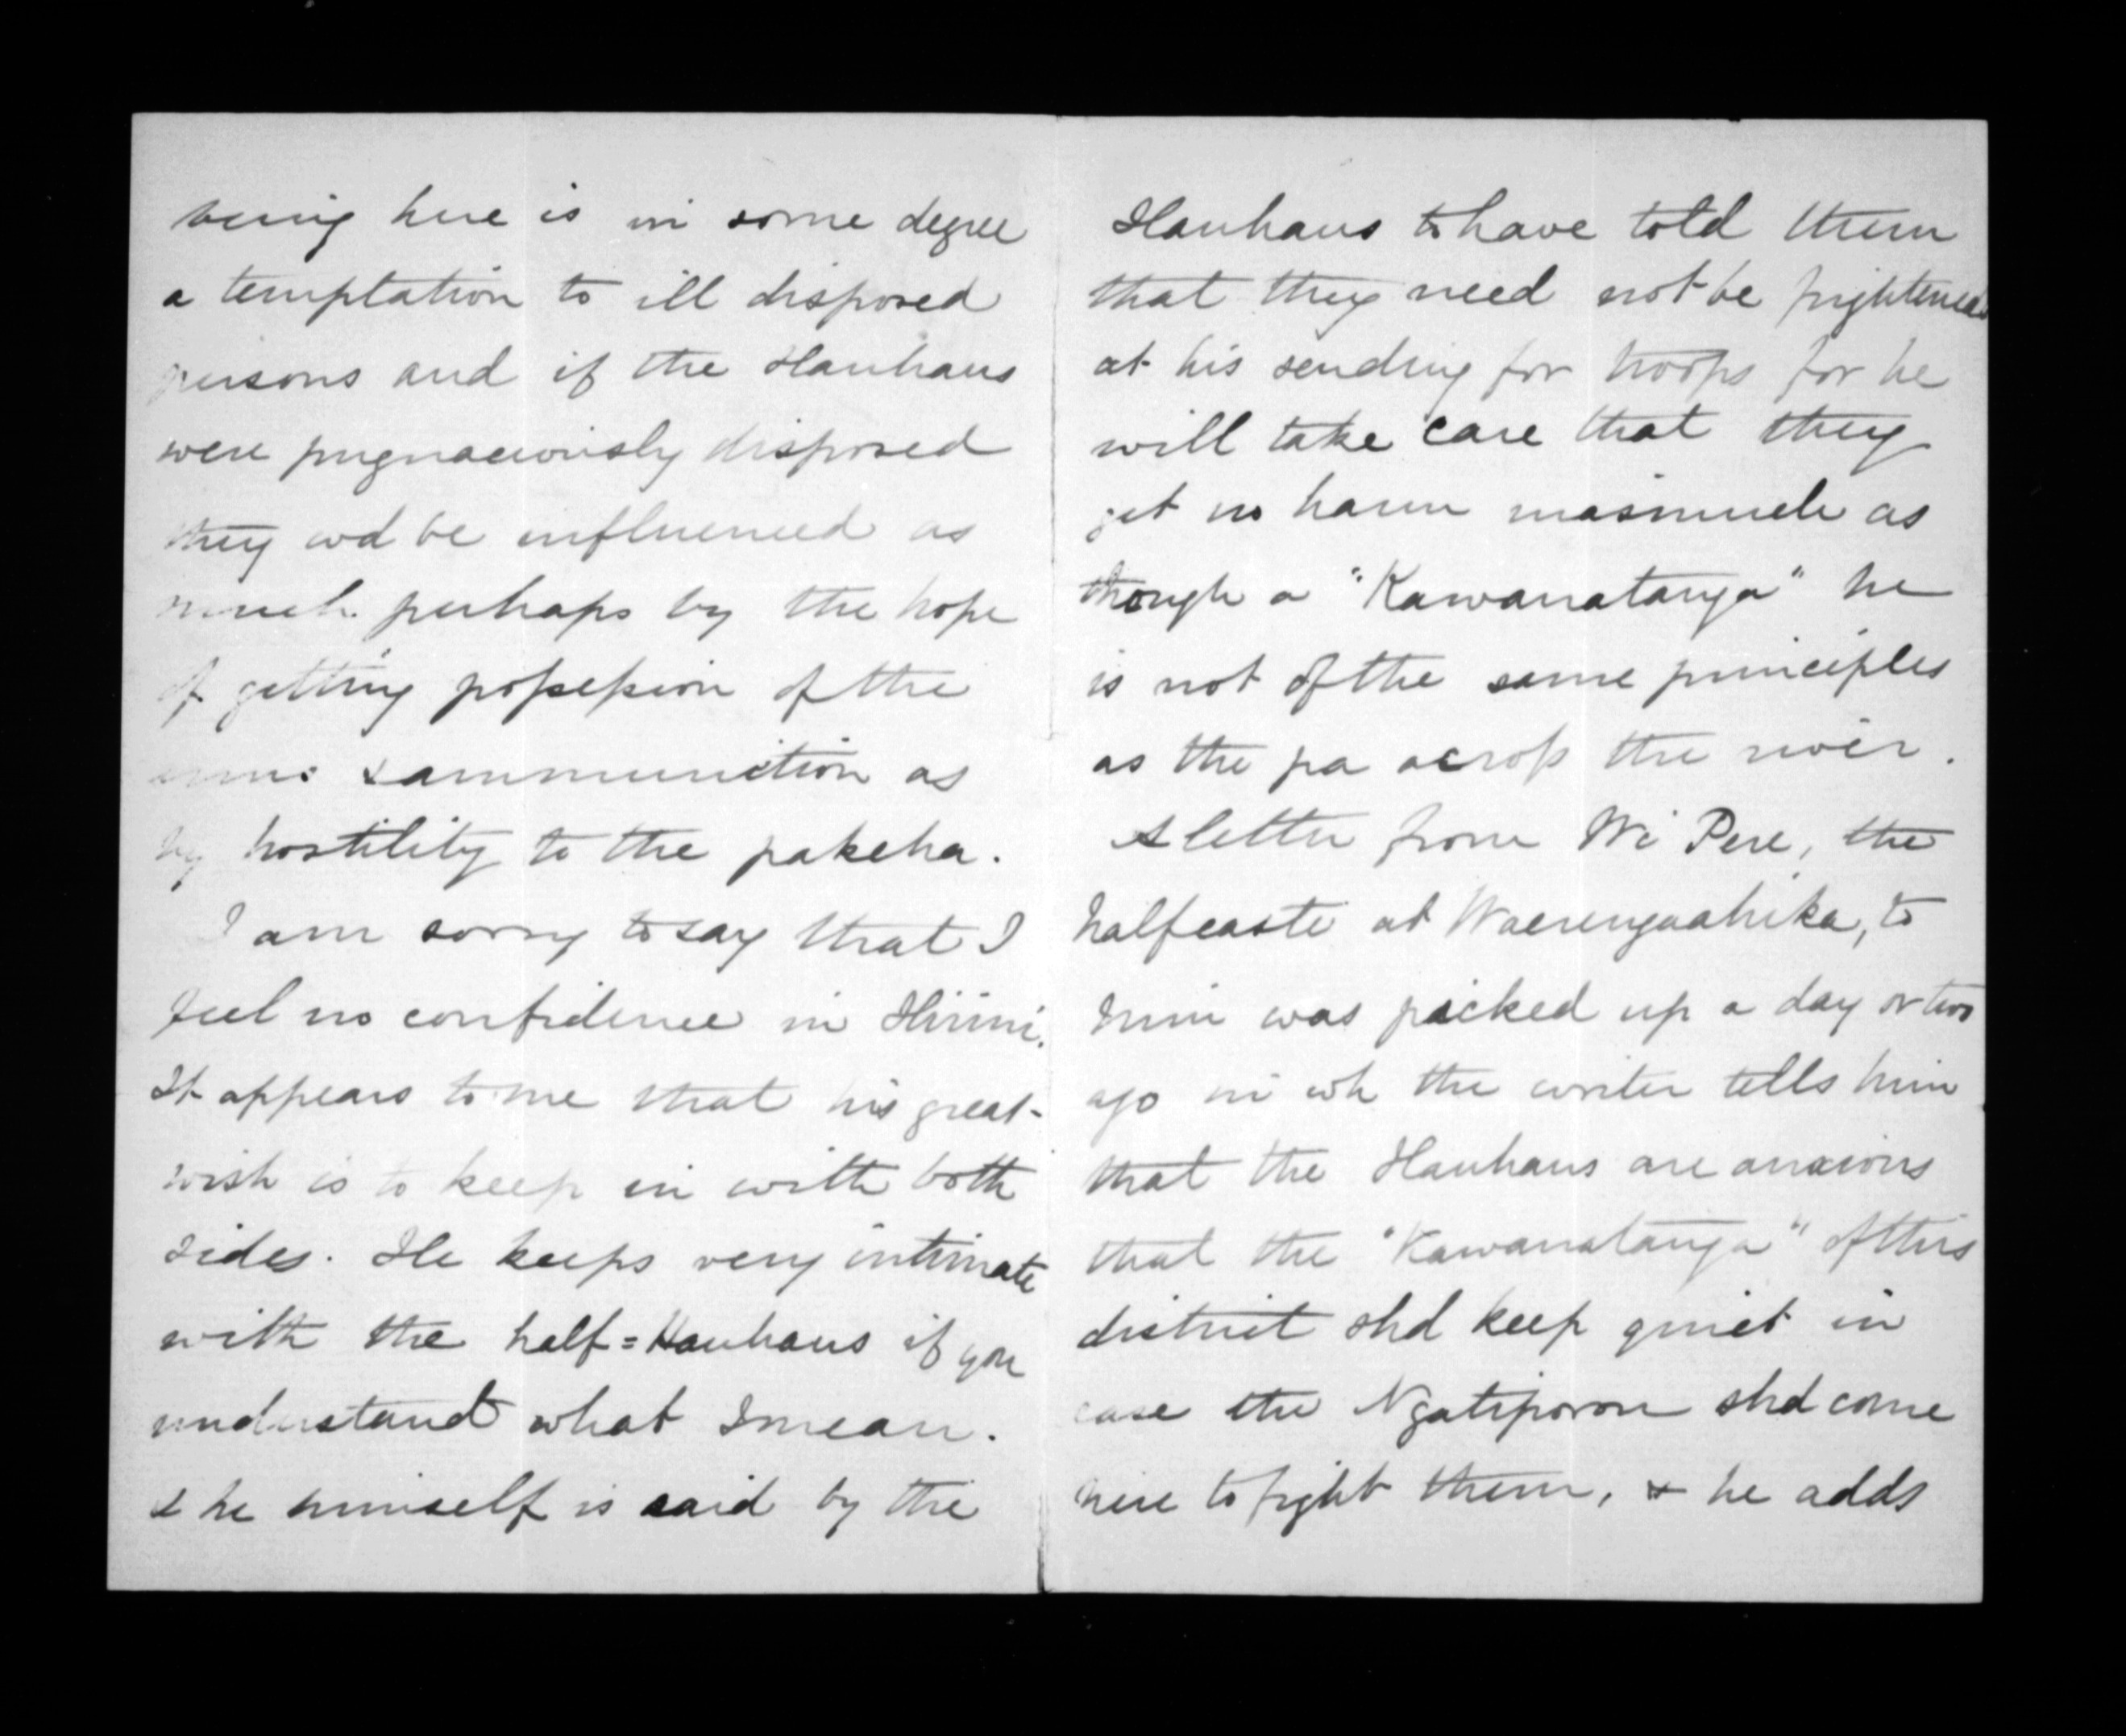 being here is in some degree
a temptation to ill disposed
persons and if the Hauhaus
were pugnaciously disposed
they wd be influenced as
much perhaps by the hope
of getting possession of the
arms & ammunition as
by hostility to the pakeha.
I am sorry to say that I
feel no confidence in Hirini.
It appears to me that his great
wish is to keep in with both
sides. He keeps very intimate
with the half=Hauhaus if you
understand what I mean.
& he himself is said by the
Hauhaus to have told them
that they need not be frightened
at his sending for troops for he
will take care that they
get no harm inasmuch as
though a "Kawanatanga" he
is not of the same principles
as the pa across the river.
A letter from Wi Pere, the
halfcaste at Waerengaahika, to
him was picked up a day or two
ago in wh the writer tells him
that the Hauhaus are anxious
that the "Kawanatanga" of this
district shd keep quiet in
case the Ngatiporou shd come
here to fight them, & he adds